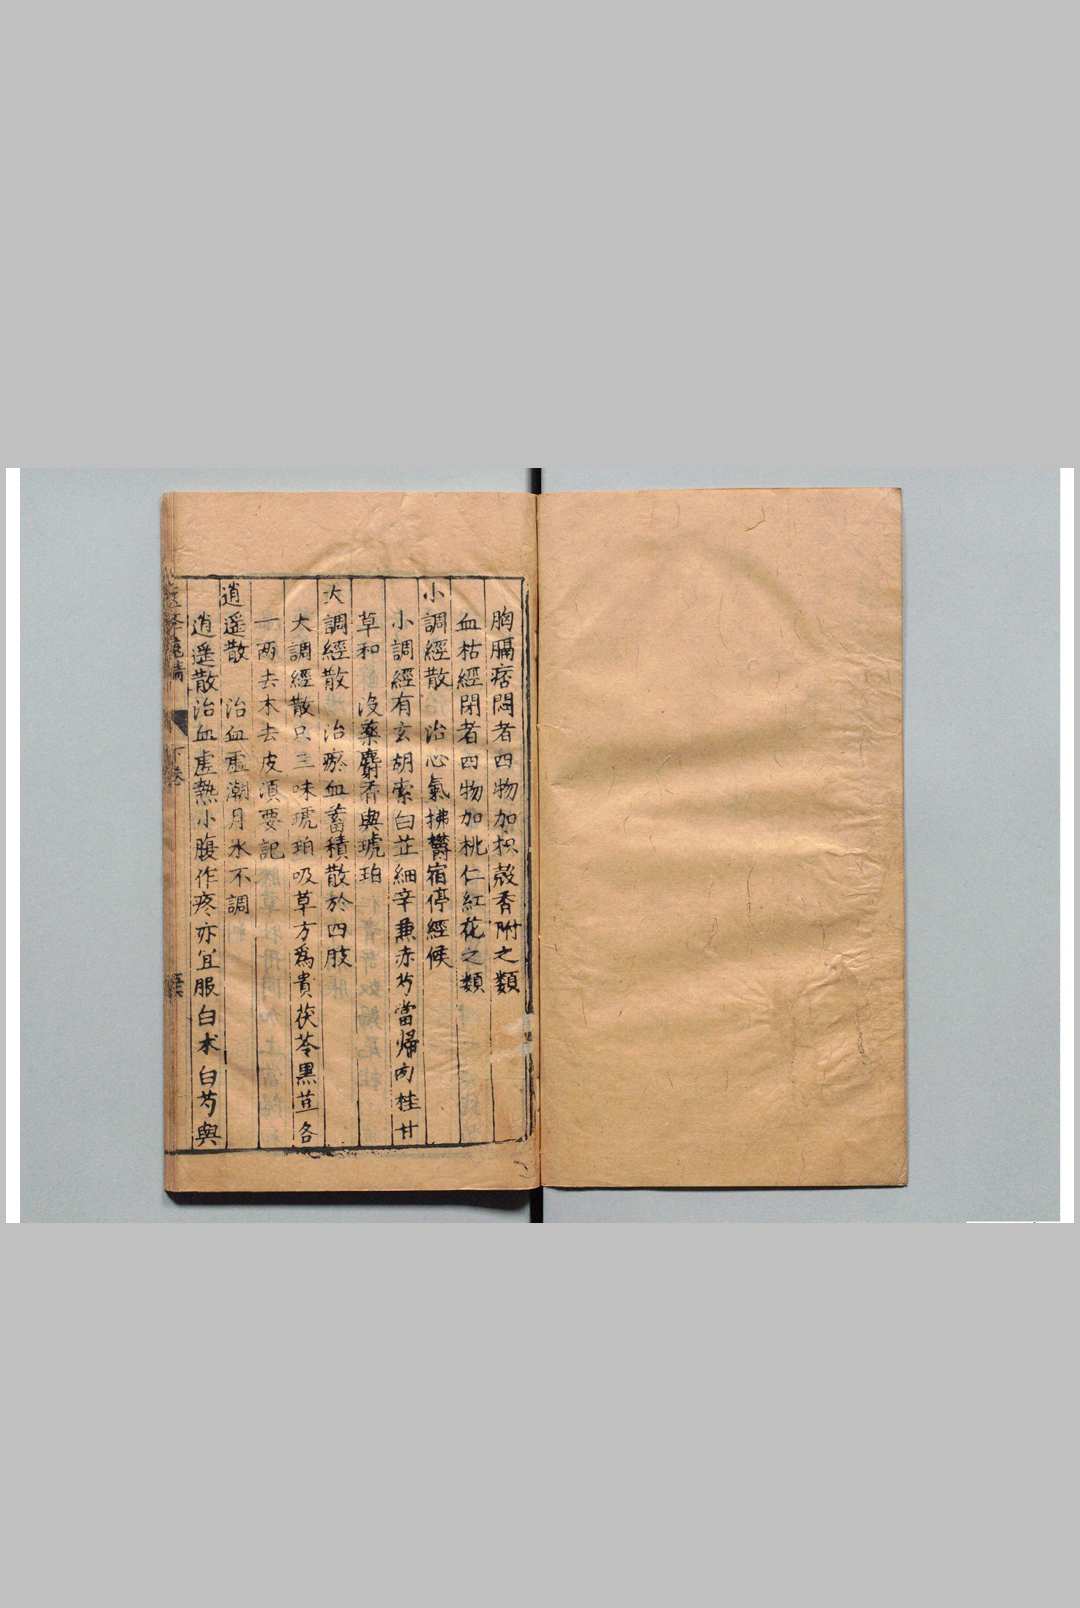 胸膈痞悶者四物加枳殼香附之類
血枯經閉者四物加桃仁紅花之類
小調經散 治心氣拂欝宿停經候
小調經有玄胡索白芷細辛兼赤芍當歸肉桂甘
草和 沒藥麝香與琥珀
大調經散 治瘀血蓄積散於四肢
大調經散只三味琥珀吸草方爲貴茯苓黑荳各
一两去木去皮湏要記
逍遥散 治血虛潮月水不調
逍遥散治血虛熱小腹作疼亦宜服白术白芍與
下卷